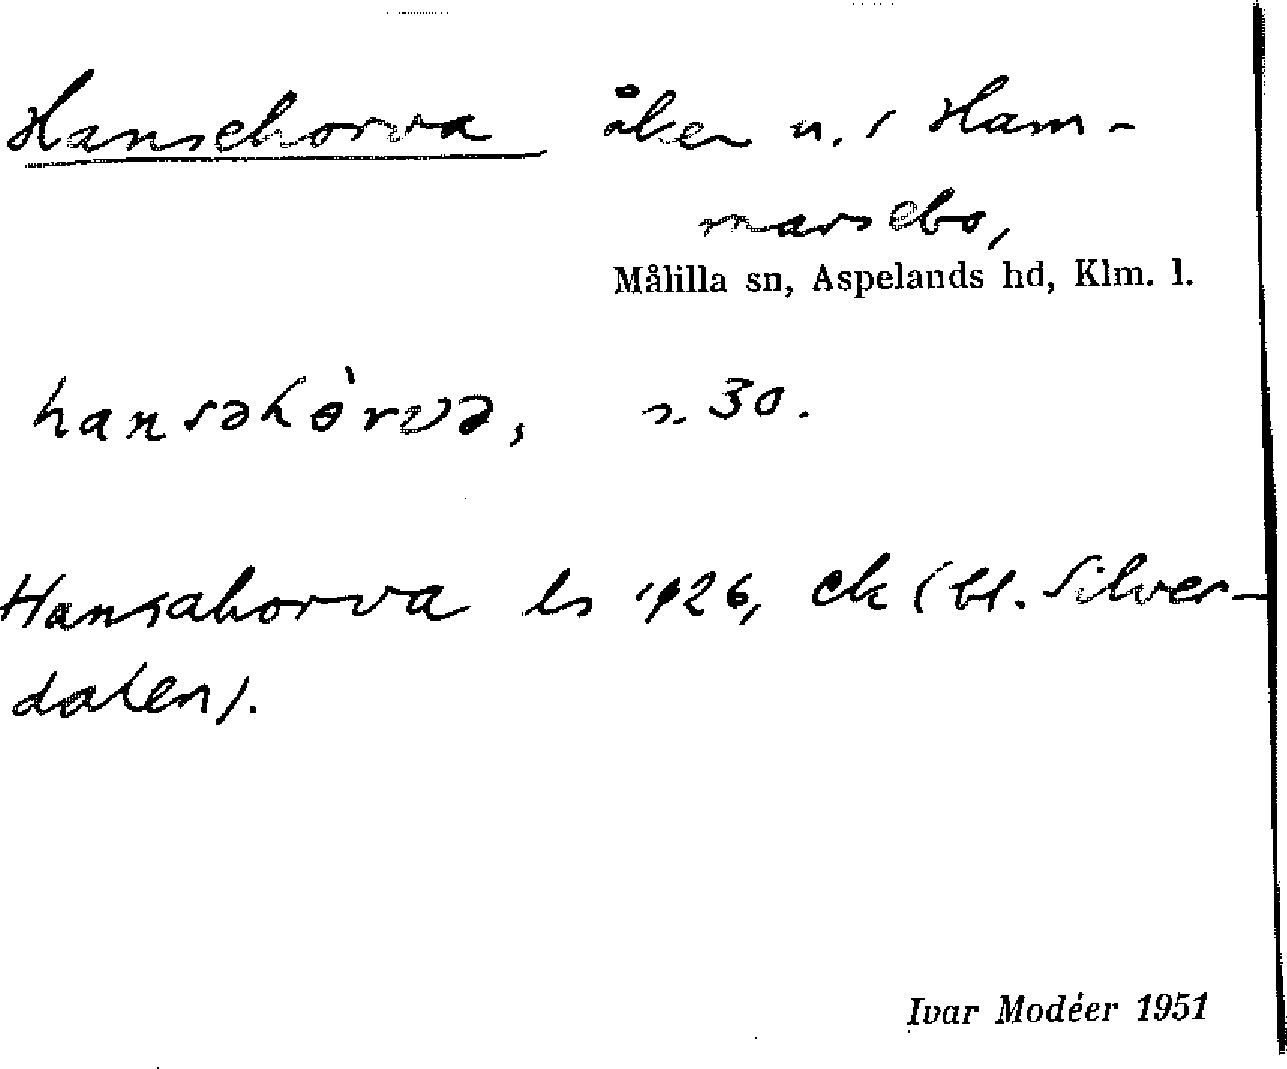 Hansehorva åker u. s Ham-
marsebo,
Målilla sn, Aspelands hd, Klm. l.
hansəhòrvə, s. 30.
Hansahorva ls 1926, ek (bl. Silver-
dalen).
Ivar Modéer 1951